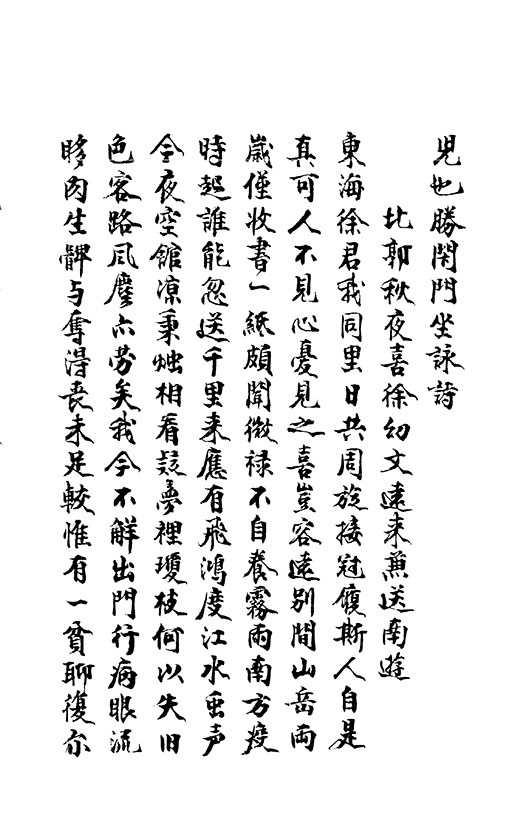 児也勝閉門坐詠詩
北郭秋夜喜徐幼文遠来兼送南遊
東海徐君我同里日共周旋接冠履斯人自是
真可人不見心憂見之喜豈容遠别間山岳両
歳僅收書一紙頗聞微禄不自養霧雨南方疫
時起誰能忽送千里来應有飛鴻度江水虫声
今夜空館凉秉燭相看疑夢裡瓊枝何以失旧
色客路風塵亦劳矣我今不解出門行病眼流
眵肉生髀与奪得丧未足較惟有一貧聊復尔